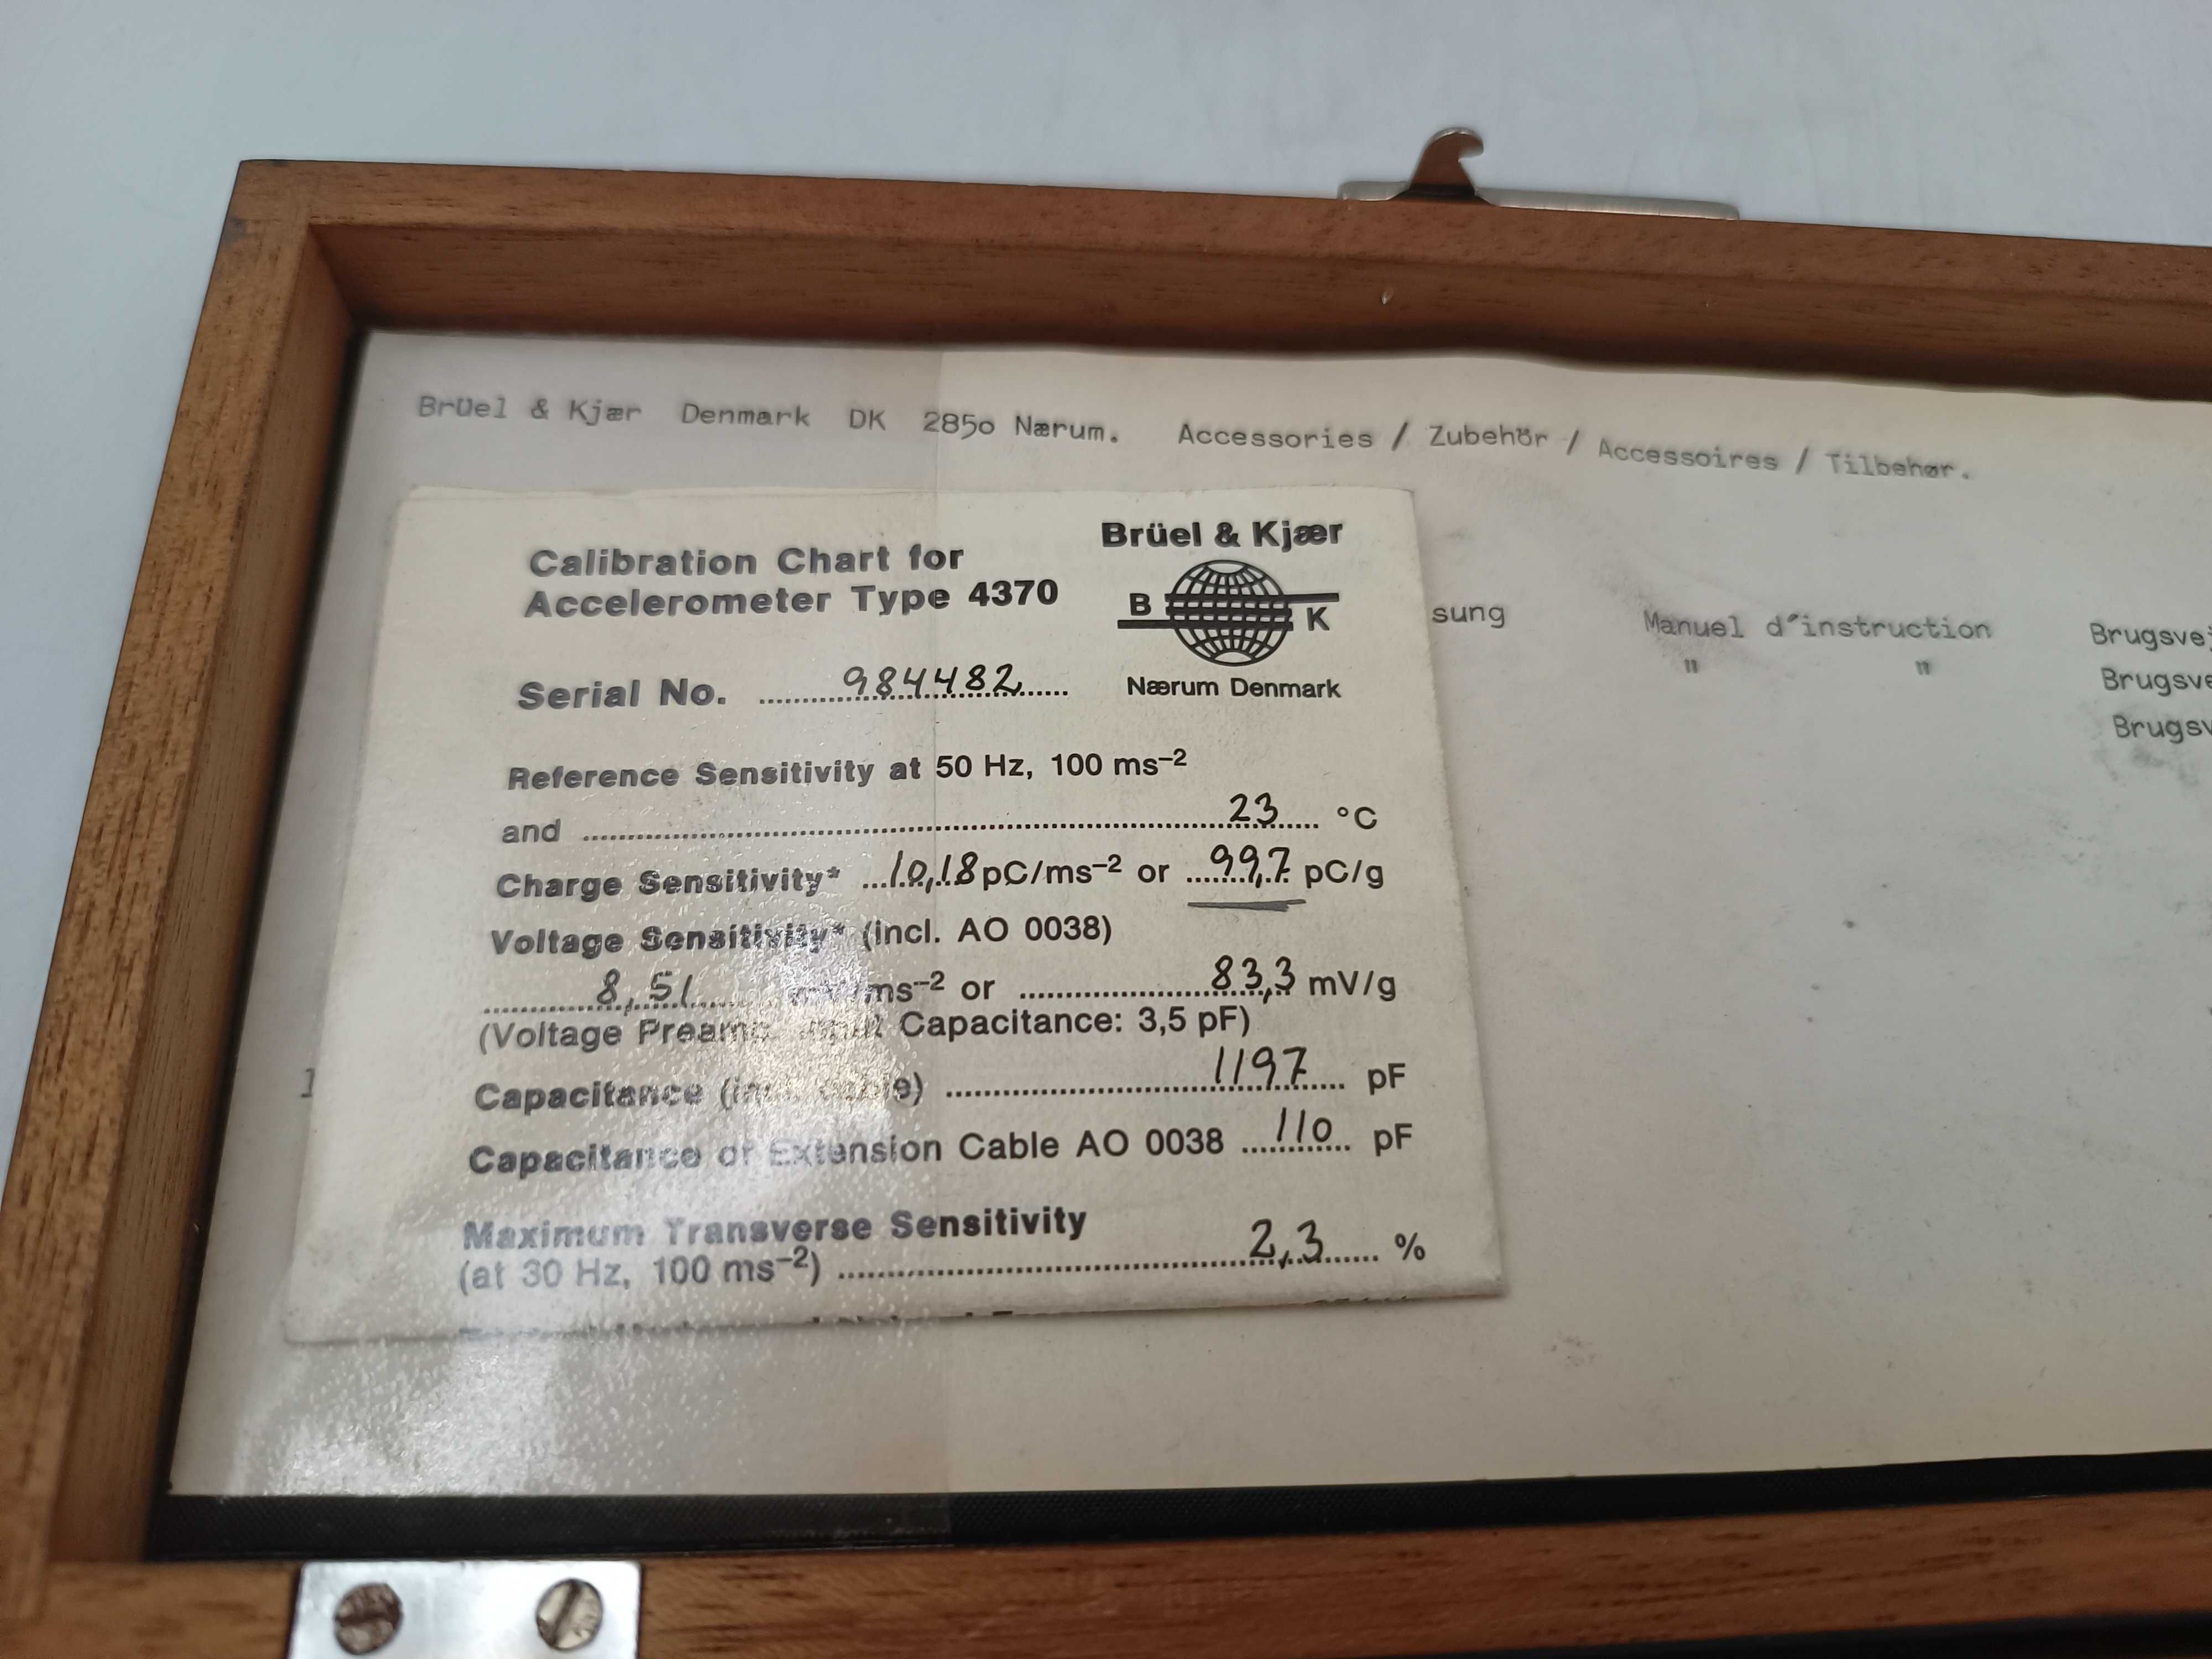 Brüel & Kjær Denmark DK 2850 Nærum. Accessories / Zubehör / Accessoires / Tilbehør.
Calibration Chart for
Accelerometer Type 4370
Brüel & Kjær
B K
Nærum Denmark
Serial No. 984482
sung Manuel d´instruction
" "
Reference Sensitivity at 50 Hz, 100 ms⁻²
and 23 °C
Charge Sensitivity* 10,18 pC/ms⁻² or 99,7 pC/g
Voltage Sensitivity* (incl. AO 0038)
8,51 ms⁻² or 83,3 mV/g
(Voltage Preamp. Input Capacitance: 3,5 pF)
1
Capacitance (incl. cable) 1197 pF
Capacitance of Extension Cable AO 0038 110 pF
Maximum Transverse Sensitivity
(at 30 Hz, 100 ms⁻²) 2,3 %